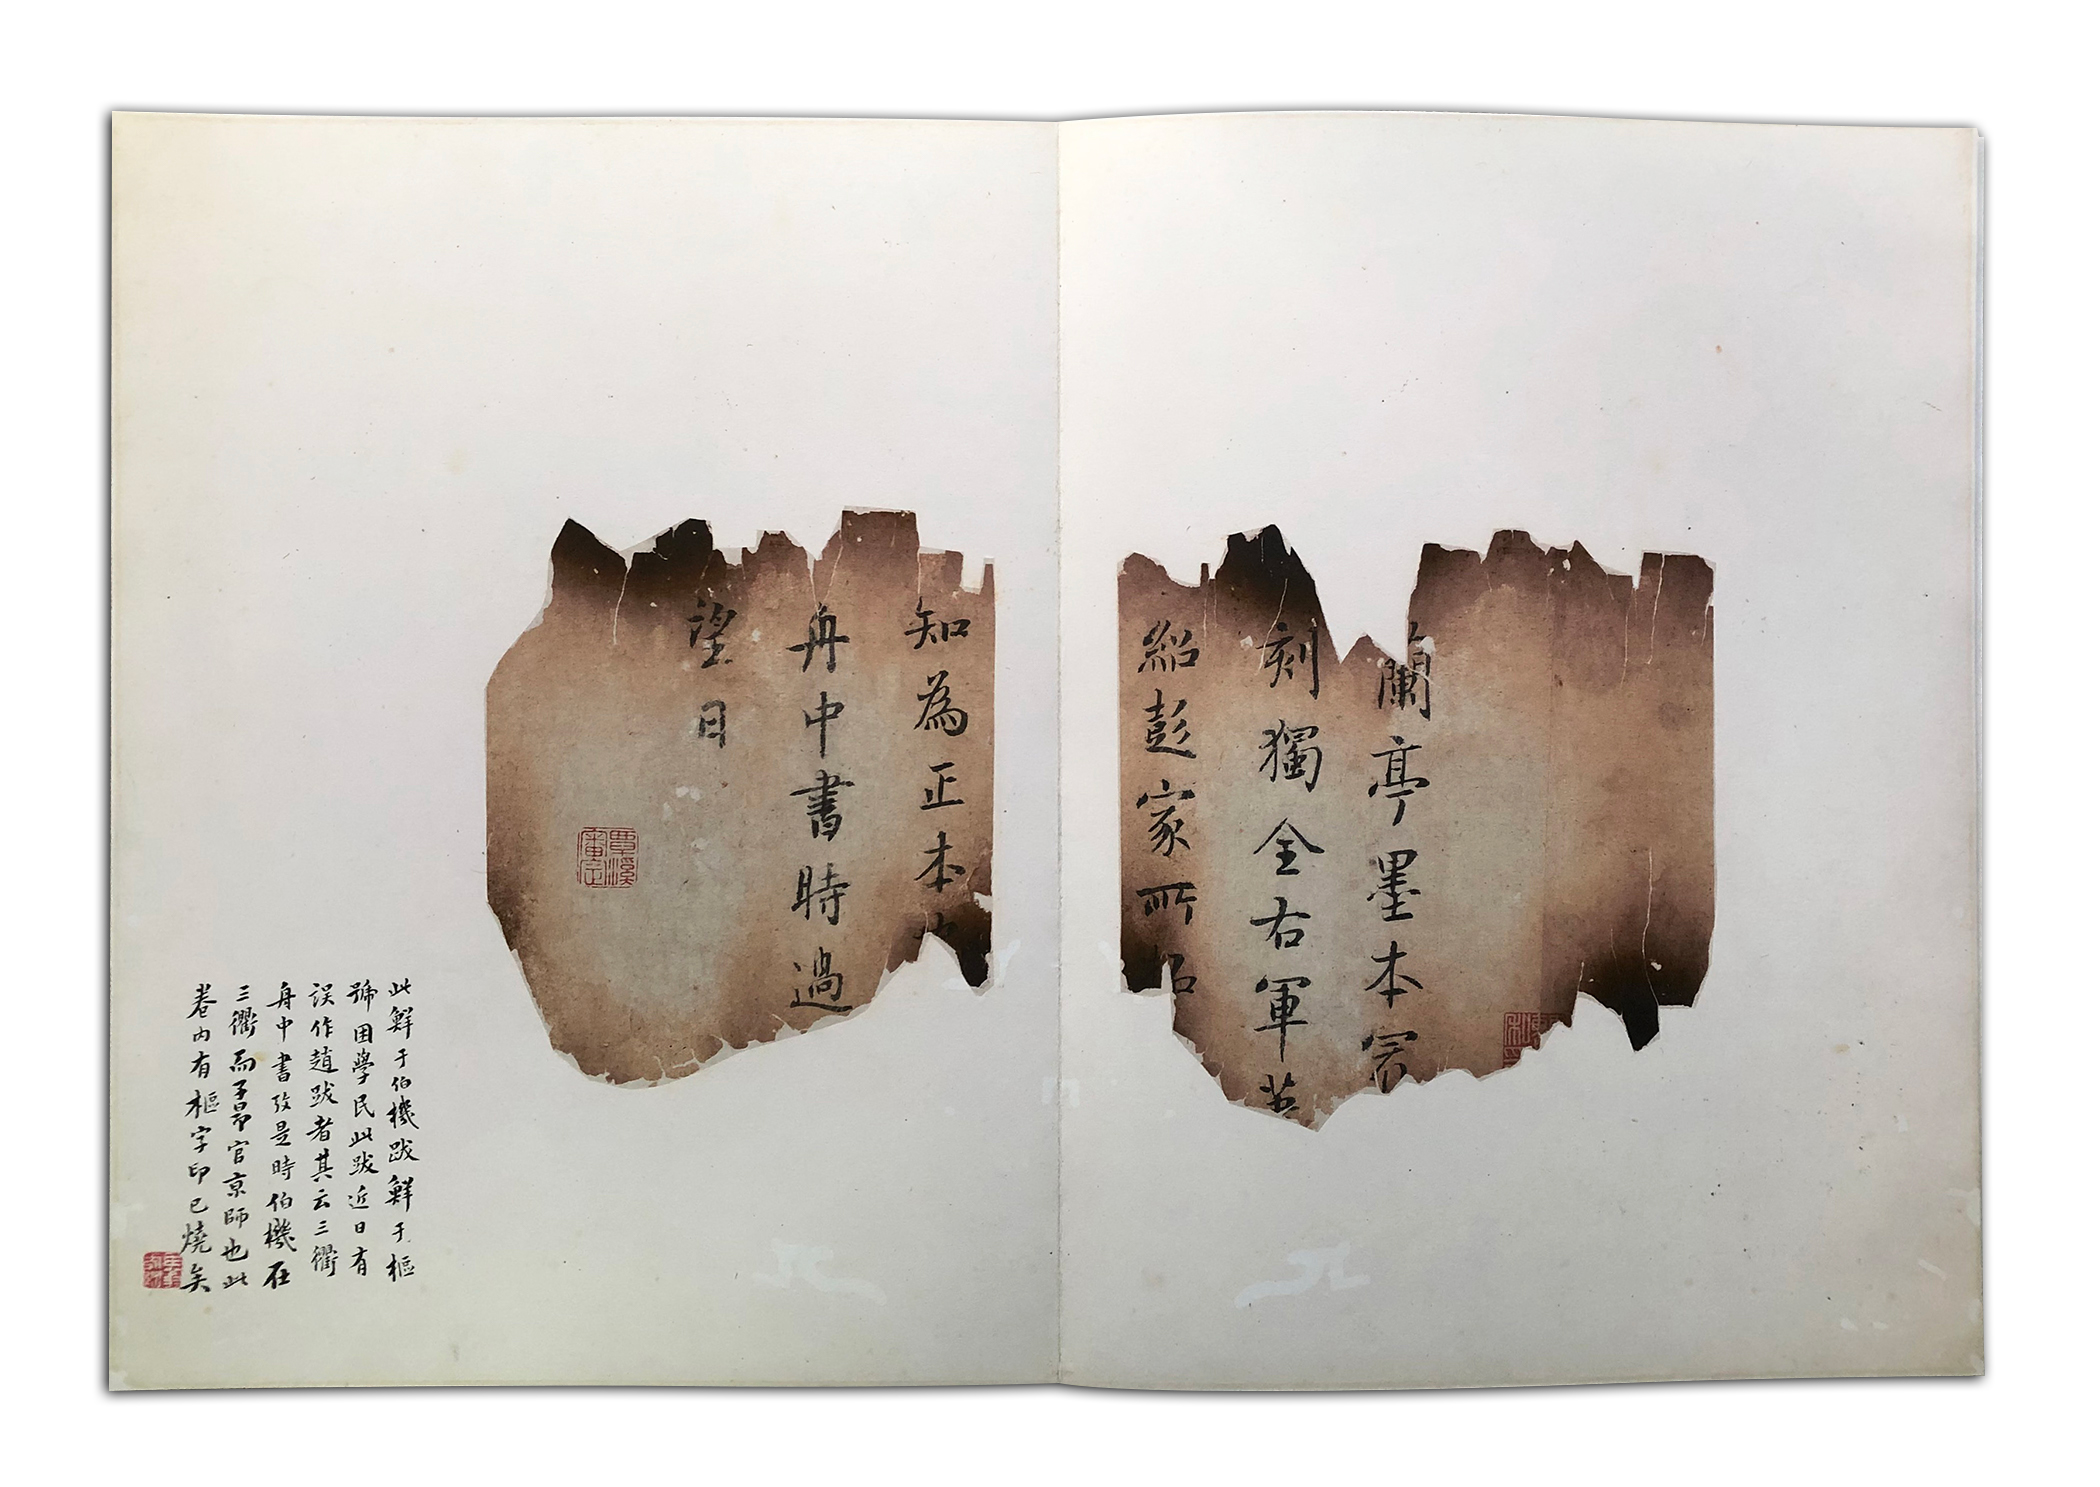 蘭亭墨本㝡
刻獨全右軍
紹彭家所
知為正本
舟中書時過
望日
覃溪審定
此鮮于伯機跋鮮于樞
號困學民此跋近日有
誤作趙跋者其云三衢
舟中書攷是時伯機在
三衢而子昂官京師也此
卷內有樞字印已燒矣